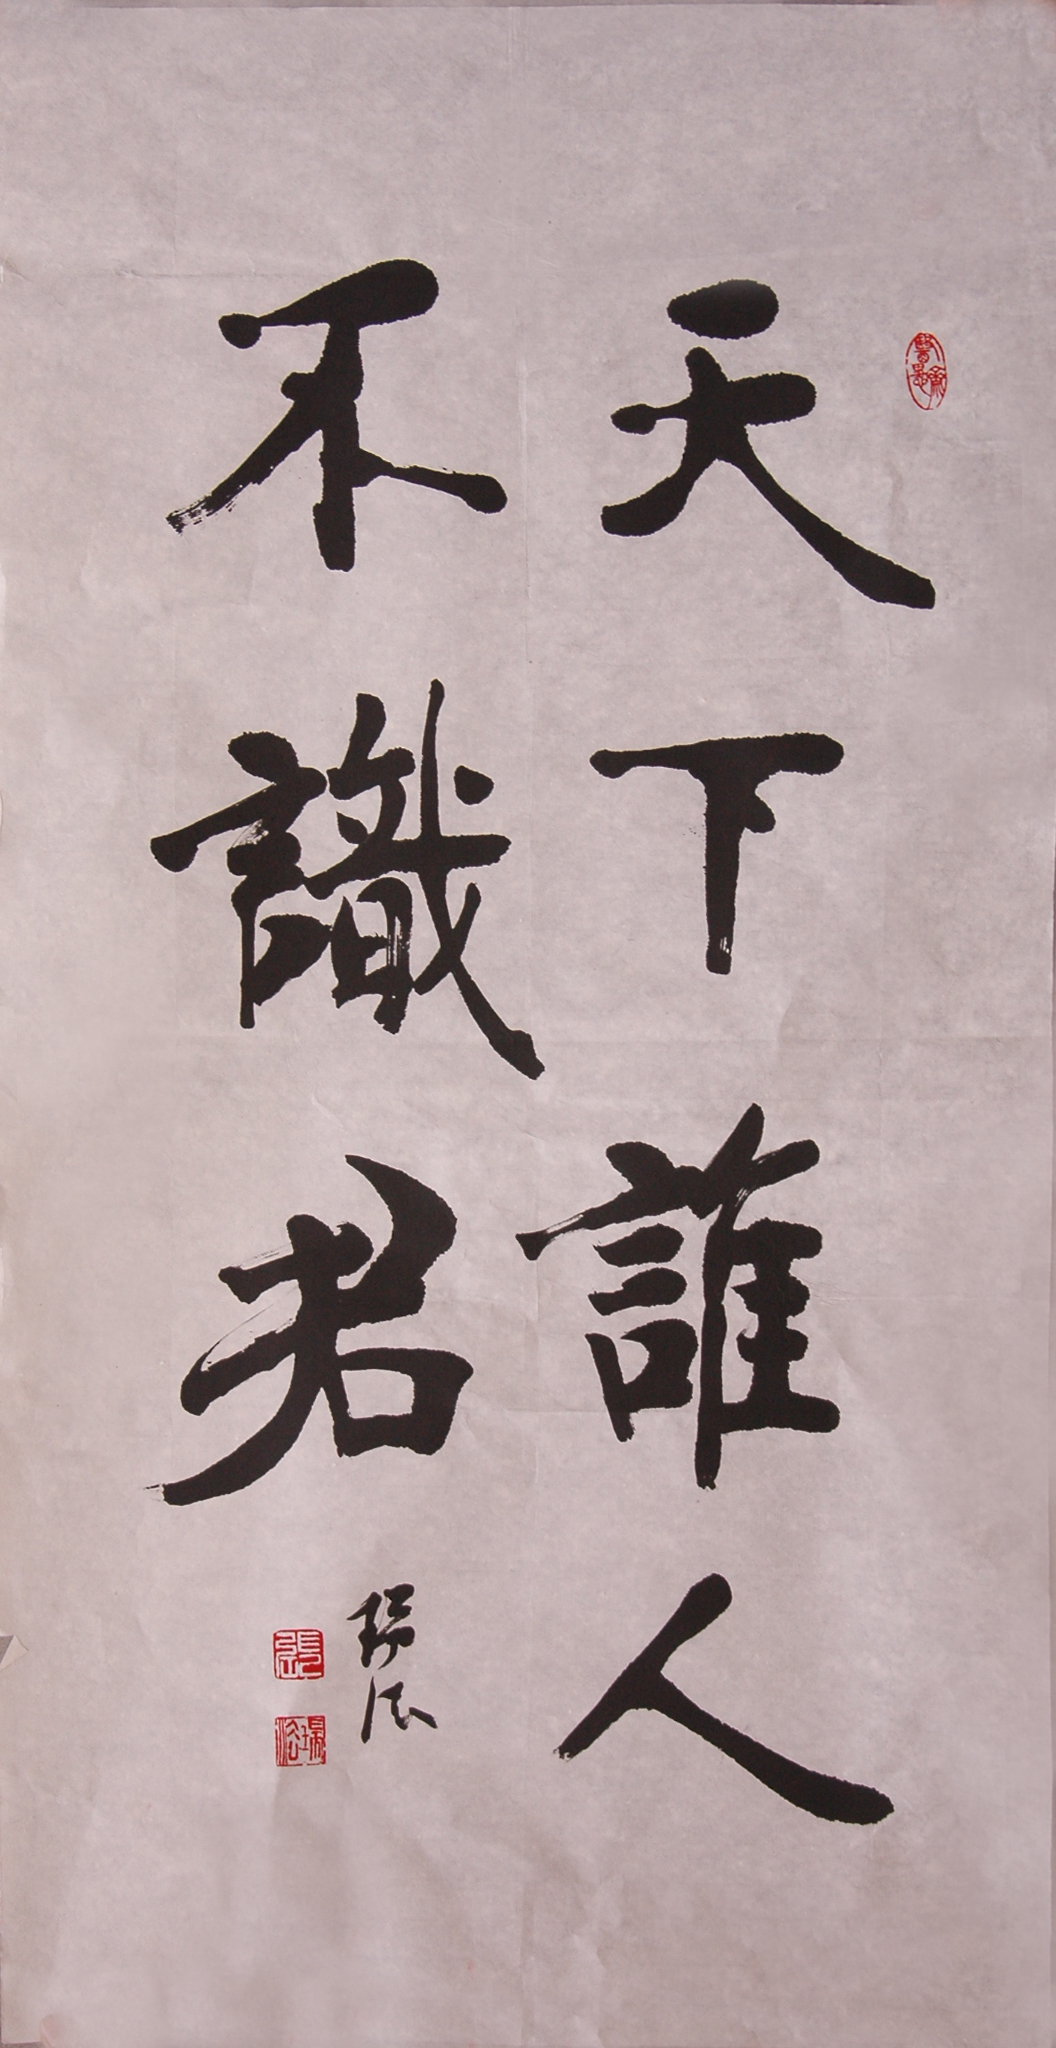 天下誰人
不識君